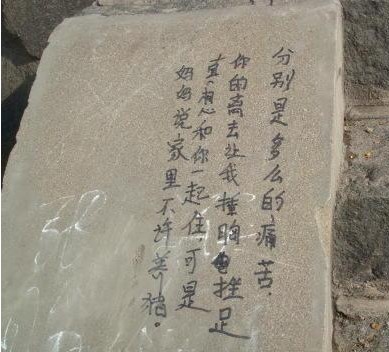 分别是多么的痛苦.
你的离去让我捶胸电挫足
直想和你一起住,可是
妈妈说家里不许养猪。